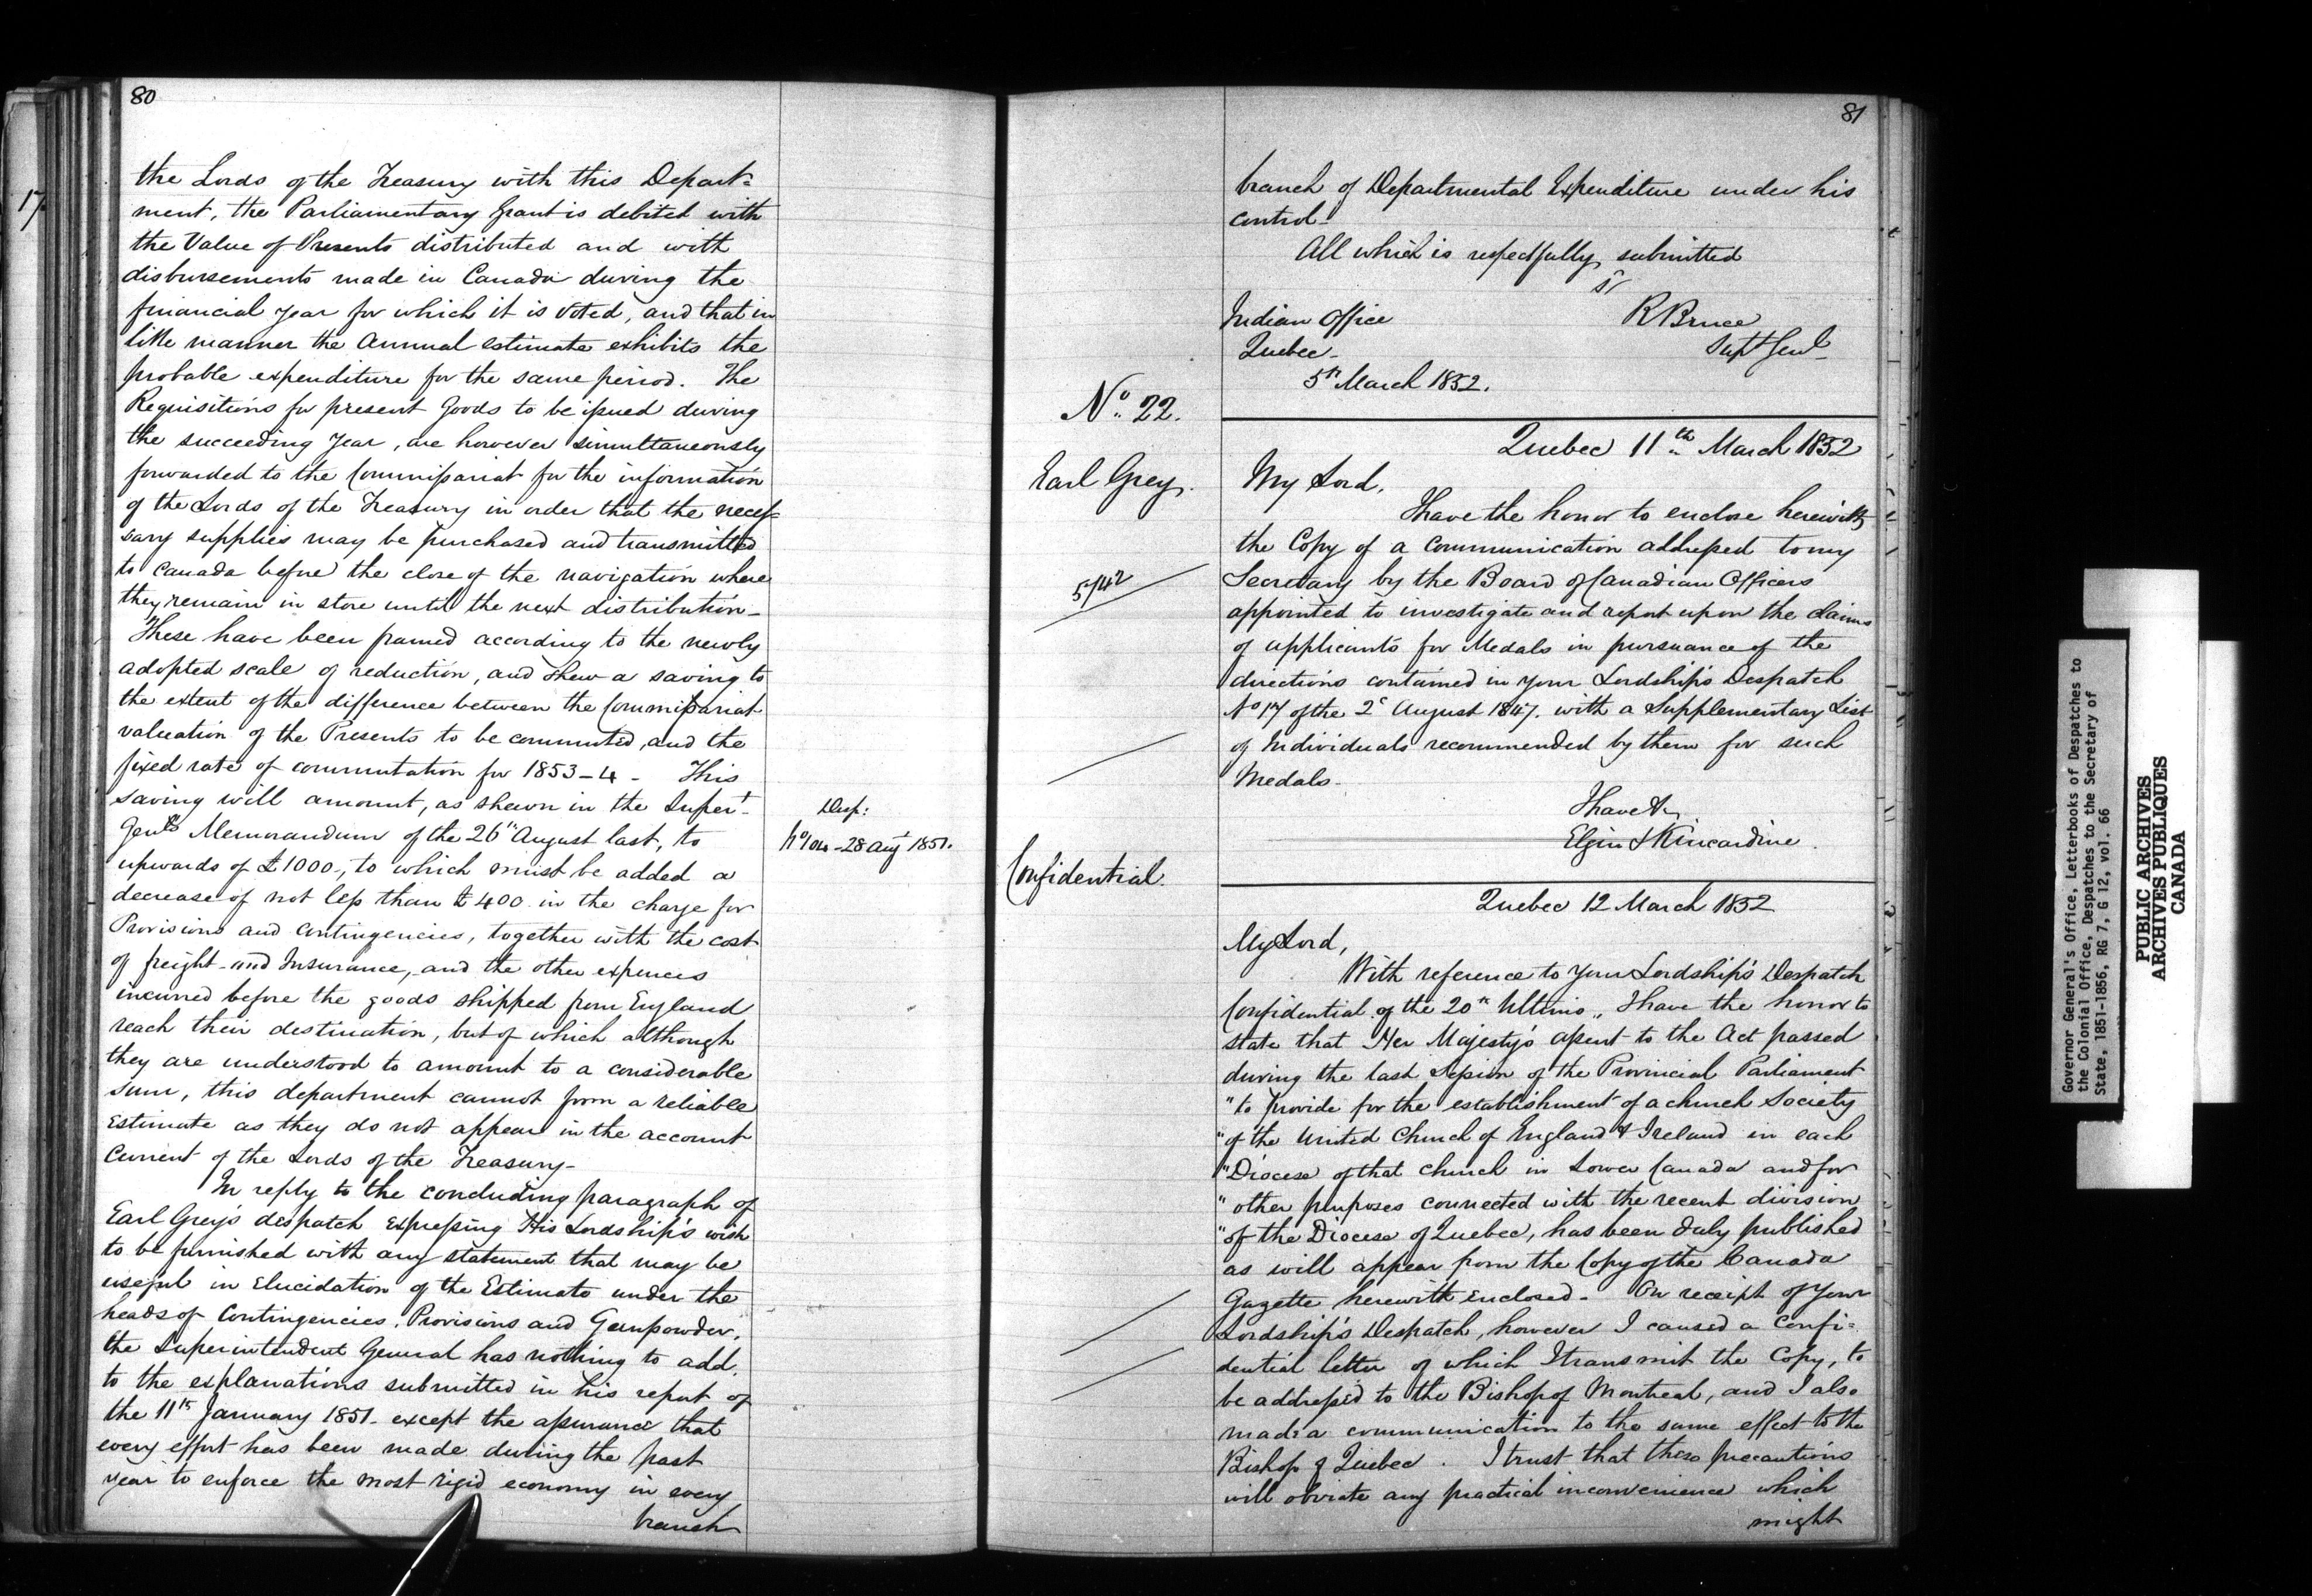 80
the Lords of the Treasury with this Depart=
ment, the Parliamentary Grant is debited with
the Value of Presents distributed and with
disbursements made in Canada during the
financial year for which it is voted, and that in
like manner the Annual estimate exhibits the
probable expenditure for the same period. The
Requisitions for present Goods to be issued during
the succeeding year, are however simultaneously
forwarded to the Commissariat for the information
of the Lords of the Treasury in order that the neces=
sary supplies may be purchased and transmitted
to Canada before the close of the navigation where
they remain in store until the next distribution_
These have been framed according to the newly
adopted scale of reduction, and shew a saving to
the extent of the difference between the Commissariat
valuation of the Presents to be commuted, and the
fixed rate of commutation for 1853_4_ This
saving will amount, as shewn in the Super^t
Genl's Memorandum of the 26th August last, to
upwards of £1000, to which must be added a
decrease of not less than £400 in the charge for
Provisions and Contingencies, together with the cost
of freight and Insurance, and the other expences
incurred before the goods shipped from England
reach their destination, but of which although
they are understood to amount to a considerable
sum, this department cannot form a reliable
Estimate as they do not appear in the account
Current of the Lords of the Treasury_
In reply to the concluding paragraph of
Earl Grey's despatch expressing His Lordship's wish
to be furnished with any statement that may be
useful in Elucidation of the Estimate under the
heads of Contingencies, Provisions and Gunpowder,
the Superintendent General has nothing to add
to the explanations submitted in his report of
the 11th January 1851_ except the assurance that
every effort has been made during the past
year to enforce the most rigid economy in every
branch
Desp:
No 104_28 Augt 1851.
17
81
branch of Departmental Expenditure under his
control_
All which is respectfully submitted
R Bruce
Supt Genl_
Indian Office
Quebec_
5th March 1852.
No. 22.
Earl Grey.
Quebec 11th March 1852
My Lord,
I have the honor to enclose herewith
the Copy of a Communication addressed to my
Secretary by the Board of Canadian Officers
appointed to investigate and report upon the claims
of applicants for Medals in pursuance of the
directions contained in your Lordship's Despatch
No 17 of the 2d August 1847. with a Supplementary List
of Individuals recommended by them for such
Medals_
I have &c
Elgin & Kincardine.
5/42
Confidential.
Quebec 12 March 1852
My Lord,
With reference to your Lordship's Despatch
Confidential of the 20th Ultimo, I have the honor to
state that Her Majesty's assent to the Act passed
during the last Session of the Provincial Parliament
"to provide for the establishment of a church Society
"of the United Church of England & Ireland in each
"Diocese of that church in Lower Canada and for
"other purposes connected with the recent division
"of the Diocese of Quebec, has been duly published
as will appear from the Copy of the Canada
Gazette herewith enclosed_ On receipt of Your
Lordship's Despatch, however I caused a Confi=
dential letter of which I transmit the Copy, to
be addressed to the Bishop of Montreal, and I also
made a communication to the same effect to the
Bishop of Quebec. I trust that these precautions
will obviate any practical inconvenience which
might
Governor General's Office, Letterbooks of Despatches to
the Colonial Office, Despatches to the Secretary of
State, 1851-1856, RG 7, G 12, vol. 66
PUBLIC ARCHIVES
ARCHIVES PUBLIQUES
CANADA